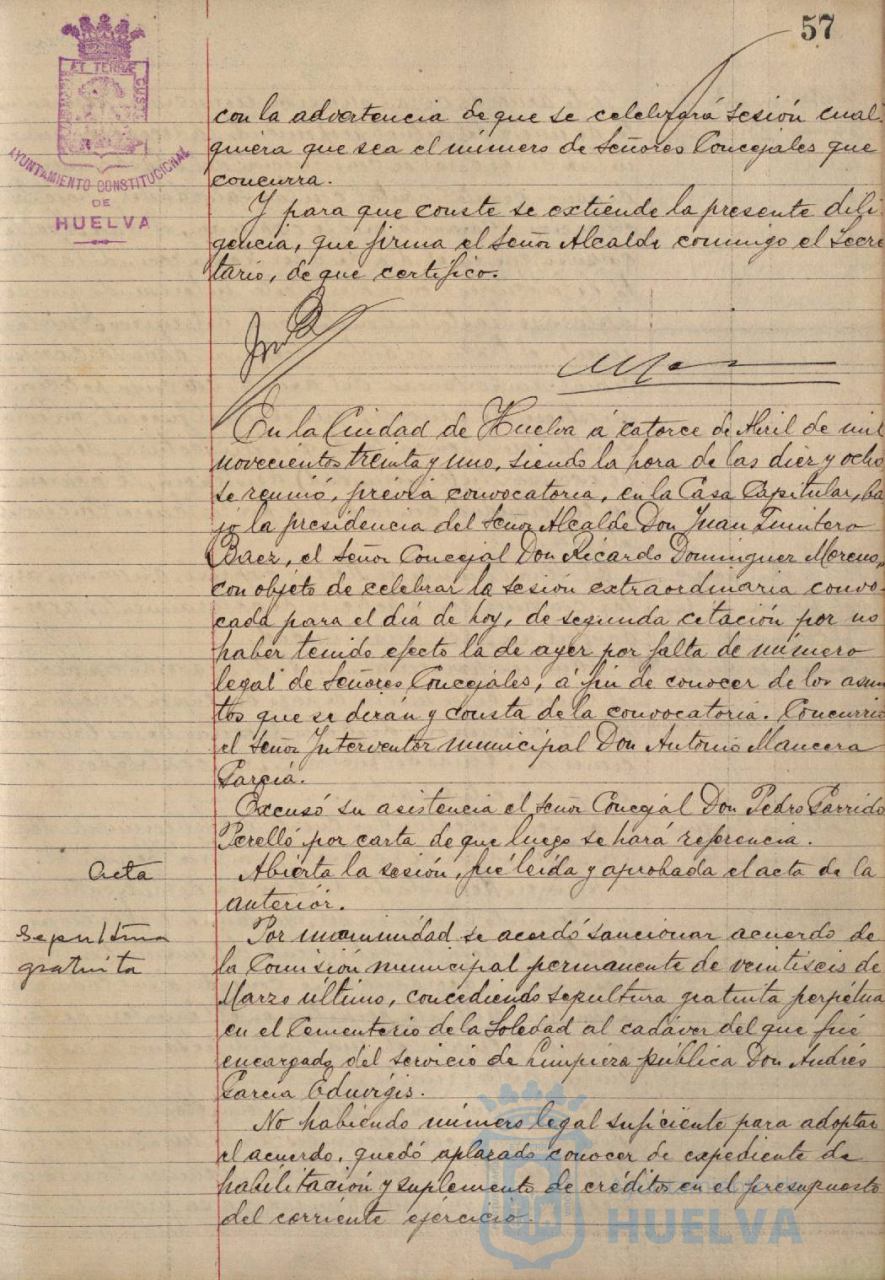 57
ET TERRAE
AYUNTAMIENTO CONSTITUCIONAL
DE
HUELVA
con la advertencia de que se celebrará sesión cual
quiera que sea el número de Señores Concejales que
concurra.
Y para que conste se extiende la presente dili
gencia, que firma el Señor Alcalde conmigo el Secre
tario, de que certifico.
En la Ciudad de Huelva á catorce de Abril de mil
novecientos treinta y uno, siendo la hora de las diez y ocho
se reunió, prévia convocatoria, en la Casa Capitular, ba
jo la presidencia del Señor Alcalde Don Juan
Baez, el Señor Concejal Don Ricardo Dominguez Moreno,
con objeto de celebrar la sesión extraordinaria convo-
cada para el día de hoy, de segunda citación por no
haber tenido efecto la de ayer por falta de número
legal de Señores Concejales, á fin de conocer de los asun
tos que se dirán y consta de la convocatoria. Concurrió
el Señor Interventor municipal Don Antonio Mancera
García.
Excusó su asistencia el Señor Concejal Don Pedro Garrido
Perelló por carta de que luego se hará referencia.
Acta
Abierta la sesión, fué leída y aprobada el acta de la
anterior.
Sepultura
gratuita
Por unanimidad se acordó sancionar acuerdo de
la Comisión municipal permanente de veintiseis de
Marzo último, concediendo sepultura gratuita perpétua
en el Cementerio de la Soledad al cadáver del que fué
encargado del servicio de limpieza pública Don Andrés
García Eduvígis.
No habiendo número legal suficiente para adoptar
el acuerdo, quedó aplazado conocer de expediente de
habilitación y suplemento de créditos en el presupuesto
del corriente ejercicio.
HUELVA